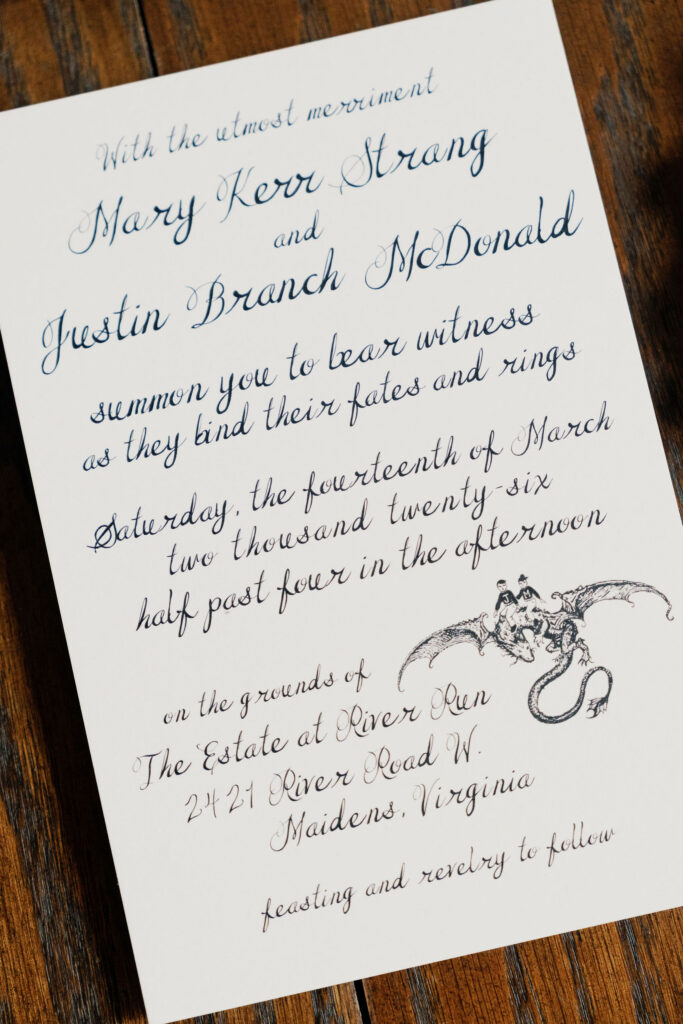 With the utmost merriment
Mary Kerr Strang
and
Justin Branch McDonald
summon you to bear witness
as they bind their fates and rings
Saturday, the fourteenth of March
two thousand twenty-six
half past four in the afternoon
on the grounds of
The Estate at River Run
2421 River Road W.
Maidens, Virginia
feasting and revelry to follow